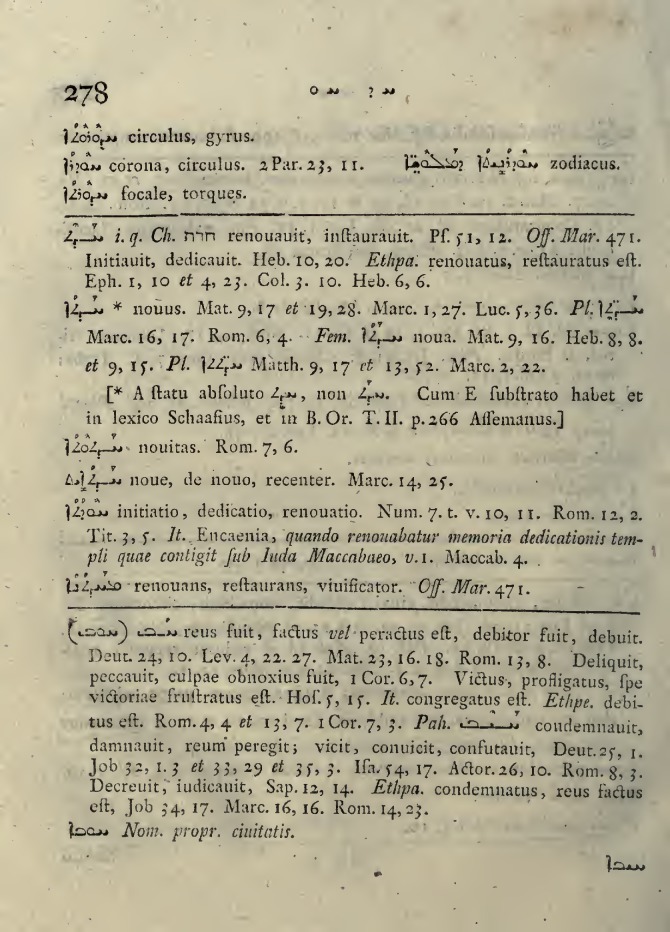 278 ܚ ܕ ܚ ܘ
ܚܕܘܪܘܬܐ circulus, gyrus.
ܚܘܕܪܐ corona, circulus. 2 Par. 23, 11. zodiacus.
ܚܕܘܪܬܐ focale, torques.
ܚܕܬ i. q. Ch. חדת renouauit, inſtaurauit. Pſ. 51, 12. Off. Mar. 471.
Initiauit, dedicauit. Heb. 10, 20. Ethpa. renouatus, reſtauratus eſt.
Eph. 1, 10 et 4, 23. Col. 3. 10. Heb. 6, 6.
ܚܕܬܐ * nouus. Mat. 9, 17 et 19, 28. Marc. 1, 27. Luc. 5, 36. Pl. ܚܕܬܐ
Marc. 16, 17. Rom. 6, 4. Fem. ܚܕܬܐ noua. Mat. 9, 16. Heb. 8, 8.
et 9, 15. Pl. ܚܕܬܬܐ Matth. 9, 17 et 13, 52. Marc. 2, 22.
[* A ſtatu abſoluto ܚܕܬ, non ܚܕܬ. Cum E ſubſtrato habet et
in lexico Schaafius, et in B. Or. T. II. p. 266 Aſſemanus.]
ܚܕܬܘܬܐ nouitas. Rom. 7, 6.
ܚܕܬܐܝܬ noue, de nouo, recenter. Marc. 14, 25.
ܚܘܕܬܐ initiatio, dedicatio, renouatio. Num. 7. t. v. 10, 11. Rom. 12, 2.
Tit. 3, 5. It. Encaenia, quando renouabatur memoria dedicationis tem-
pli quae contigit ſub Iuda Maccabaeo, v. 1. Maccab. 4.
ܡܚܕܬܢܐ renouans, reſtaurans, viuificator. Off. Mar. 471.
(ܚܘܒ) ܚܒ reus fuit, factus vel peractus eſt, debitor fuit, debuit.
Deut. 24, 10. Lev. 4, 22. 27. Mat. 23, 16. 18. Rom. 13, 8. Deliquit,
peccauit, culpae obnoxius fuit, 1 Cor. 6, 7. Victus, profligatus, ſpe
victoriae fruſtratus eſt. Hoſ. 5, 15. It. congregatus eſt. Ethpe. debi-
tus eſt. Rom. 4, 4 et 13, 7. 1 Cor. 7, 3. Pah. ܚܝܒ condemnauit,
damnauit, reum peregit; vicit, conuicit, confutauit, Deut. 25, 1.
Job 32, 1. 3 et 33, 29 et 35, 3. Iſa. 54, 17. Actor. 26, 10. Rom. 8, 3.
Decreuit, iudicauit, Sap. 12, 14. Ethpa. condemnatus, reus factus
eſt, Job 34, 17. Marc. 16, 16. Rom. 14, 23.
ܚܘܒܐ Nom. propr. ciuitatis.
ܚܘܒܐ